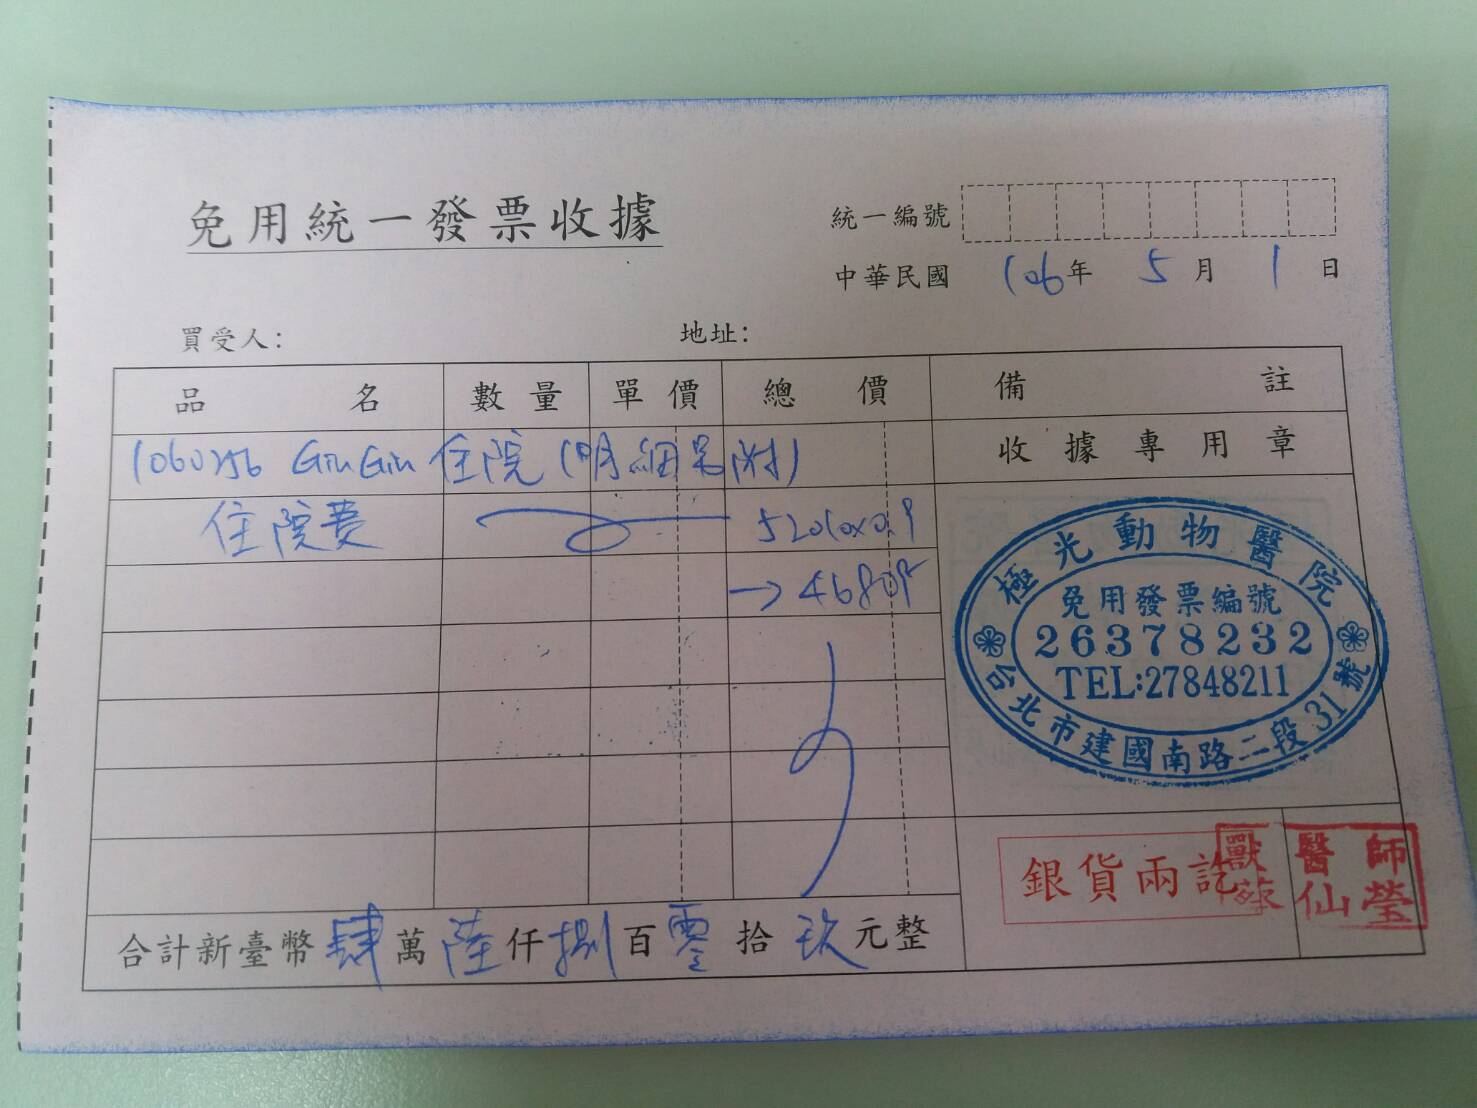 免用統一發票收據
統一編號
中華民國 106年 5月 1日
買受人: 地址:
品名 數量 單價 總價 備註
1060256 GiuGiu 住院(明細另附) 收據專用章
住院費 52010x0.9
→46809
極光動物醫院
免用發票編號
26378232
TEL:27848211
台北市建國南路二段31號
銀貨兩訖
獸醫師
蔡仙瑩
合計新臺幣肆萬陸仟捌百零拾玖元整